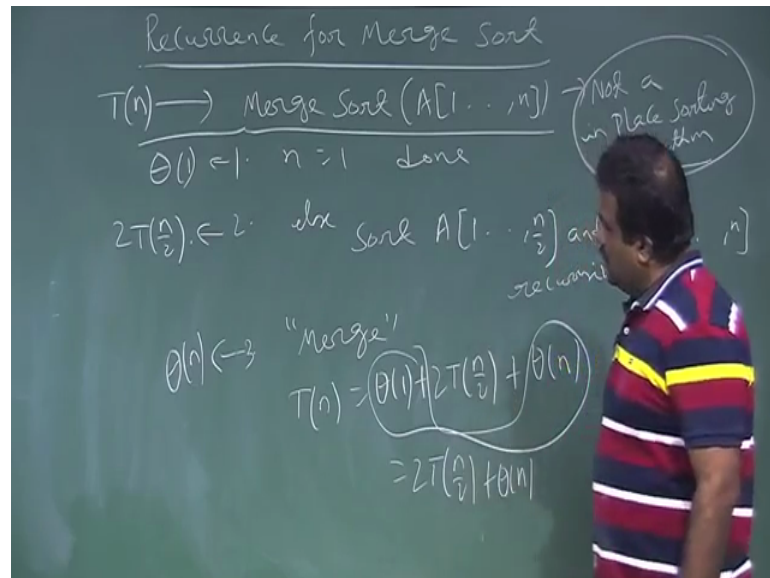 Recurrence for Merge Sort
T(n) ⟶ Merge Sort (A[1 · · , n]) → Not a
in place sorting
thm
Θ(1) ← 1. n = 1 done
2T(n/2) ← 2. else sort A[1 · · , n/2] and , n]
Θ(n) ← 3. "Merge"
T(n) = Θ(1) + 2T(n/2) + Θ(n)
= 2T(n/2) + Θ(n)